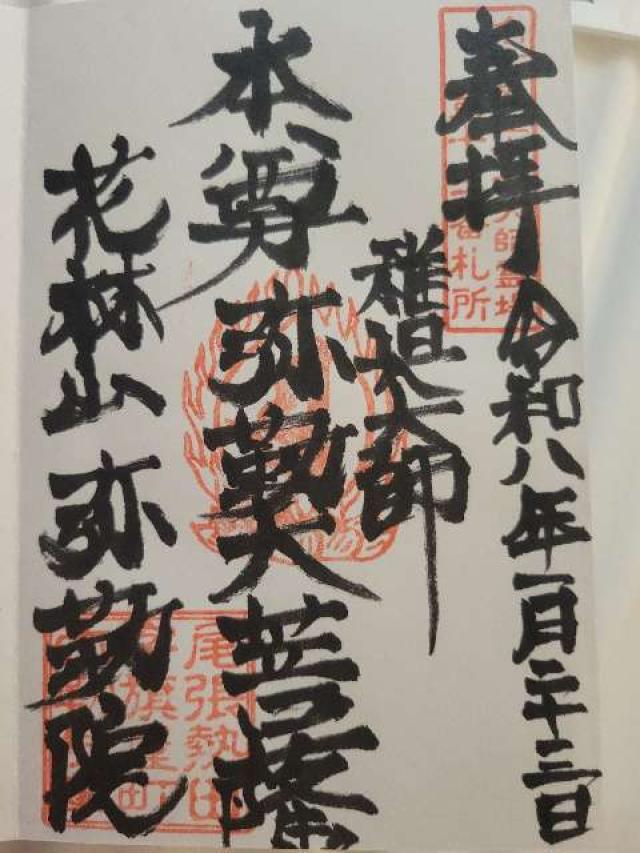 奉拝
令和八年一月二十三日
大師
本尊
弥勒大菩薩
花林山
弥勒院
番札所
尾張熱田